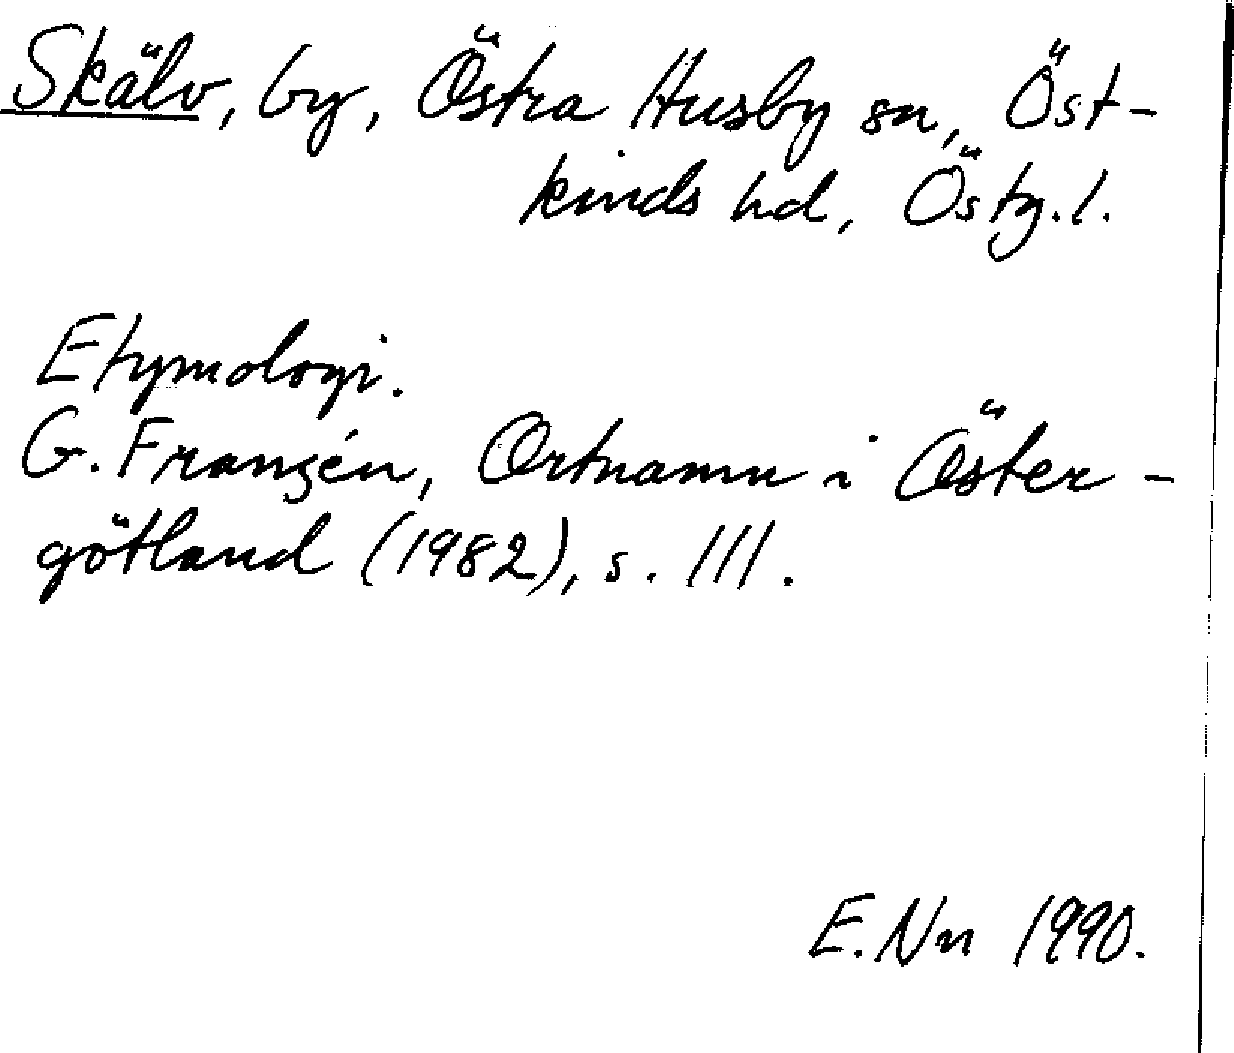 Skälv, by, Östra Husby sn, Öst-
kinds hd, Östg.l.
Etymologi.
G. Franzén, Ortnamn i Öster-
götland (1982), s. 111.
E.Nn 1990.